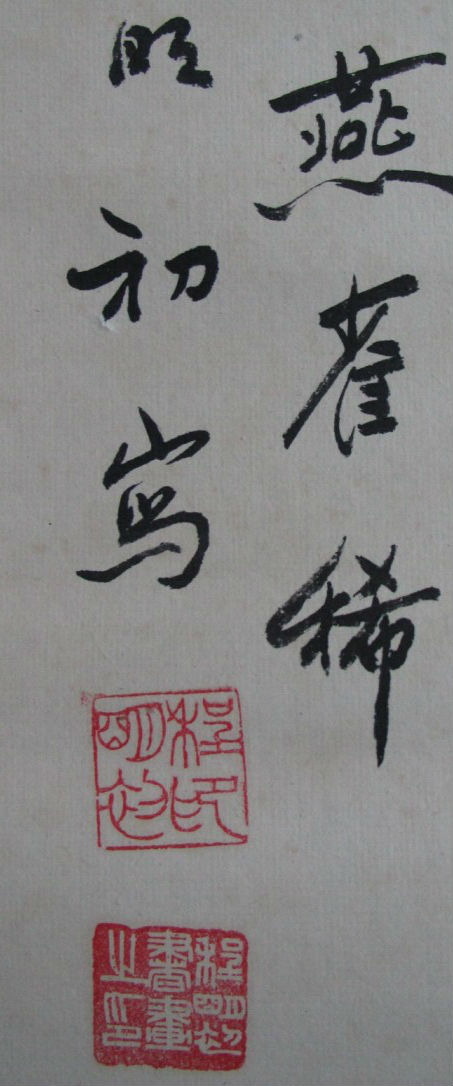 燕雀稀
明初寫
程印明初
程明初書畫之印